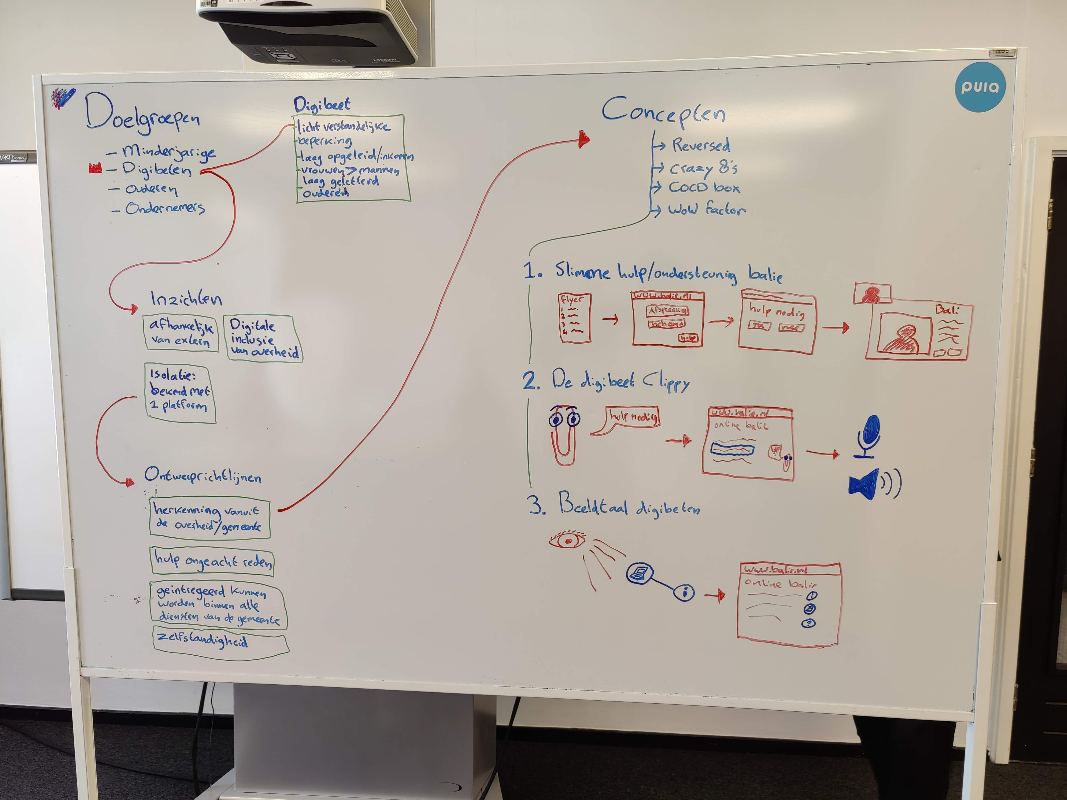 Doelgroepen
- Minderjarige
- Digibeten
- ouderen
- Ondernemers
Digibeet
- licht verstandelijke
beperking
- laag opgeleid/inkomen
- vrouwen > mannen
- laag geletterd
- ouderen
Inzichten
afhankelijk
van extern
Digitale
inclusie
van overheid
Isolatie:
bekend met
1 platform
Ontwerprichtlijnen
herkenning vanuit
de overheid/gemeente
hulp ongeacht reden
geïntegreerd kunnen
worden binnen alle
diensten van de gemeente
zelfstandigheid
Concepten
Reversed
Crazy 8's
COCD box
Wow factor
1. Slimme hulp/ondersteuning balie
Flyer
1
2
3
4
www.balie.nl
Afspraak
help
hulp nodig
Bali
2. De digibeet Clippy
hulp nodig
www.balie.nl
online balie
3. Beeldtaal digibeten
www.balie.nl
online balie
pula